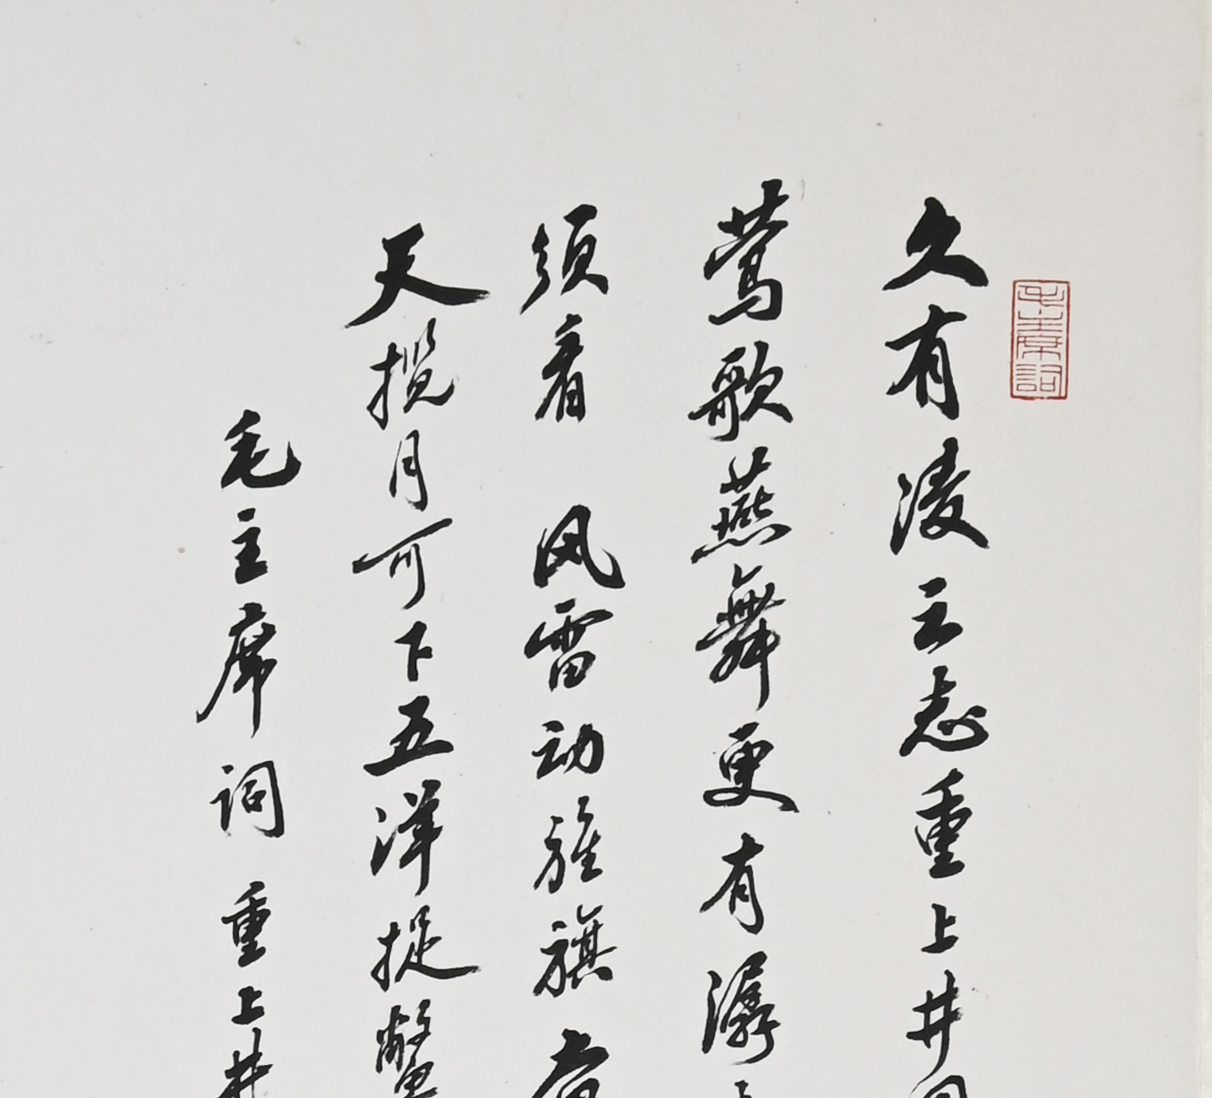 毛主席词
久有凌云志重上井冈
莺歌燕舞更有潺
须看风雷动旌旗奋
天揽月可下五洋捉鳖
毛主席词重上井